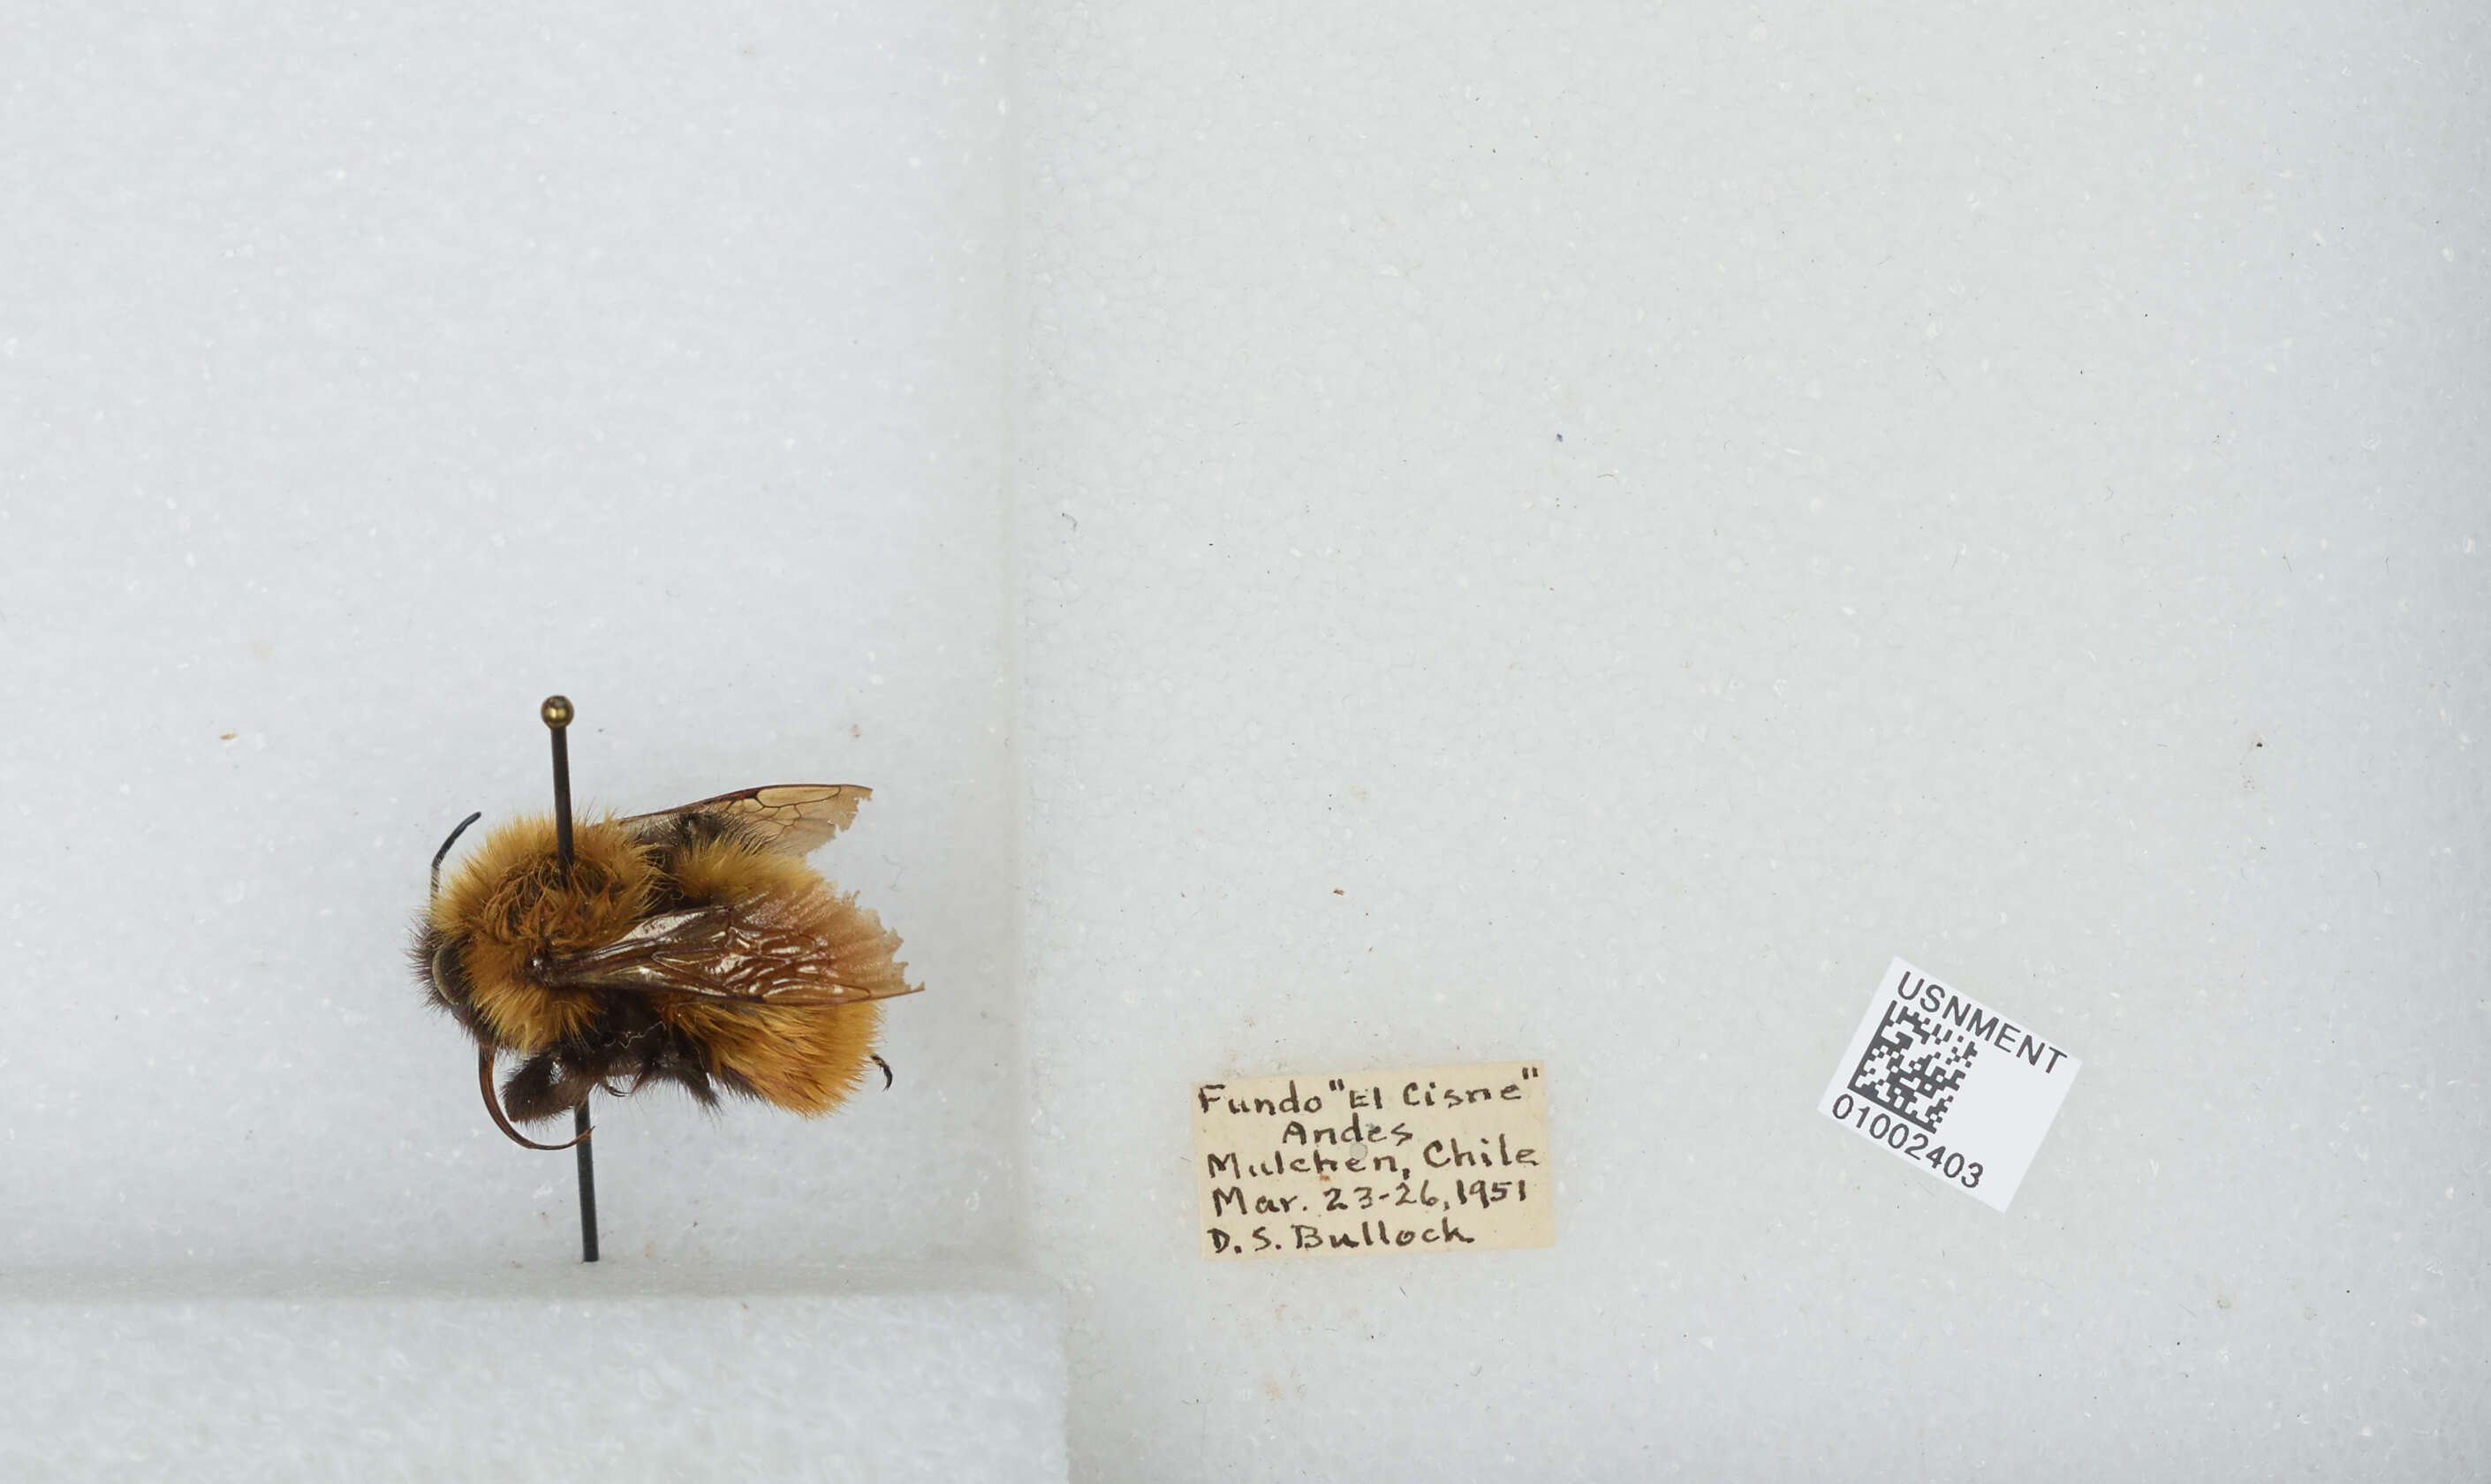 Fundo "El Cisne"
Andes
Mulchen, Chile
Mar. 23-26, 1951
D. S. Bullock
USNMENT
01002403